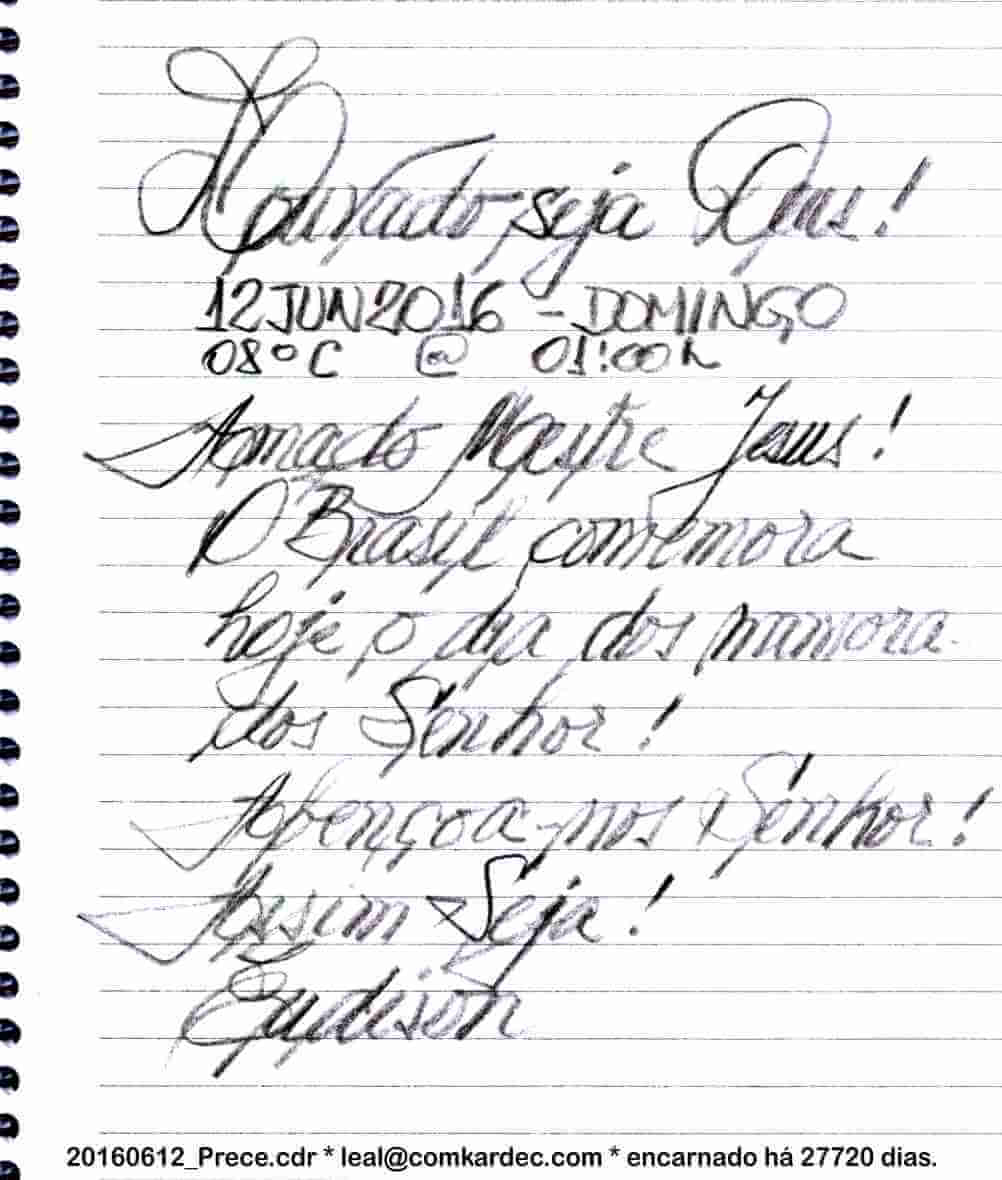 Louvado seja Deus!
12JUN2016 - DOMINGO
08°C @ 01:00h
Amado Mestre Jesus!
O Brasil comemora
hoje o dia dos namora-
dos Senhor!
Abençoa-nos Senhor!
Assim Seja!
20160612_Prece.cdr * leal@comkardec.com * encarnado há 27720 dias.